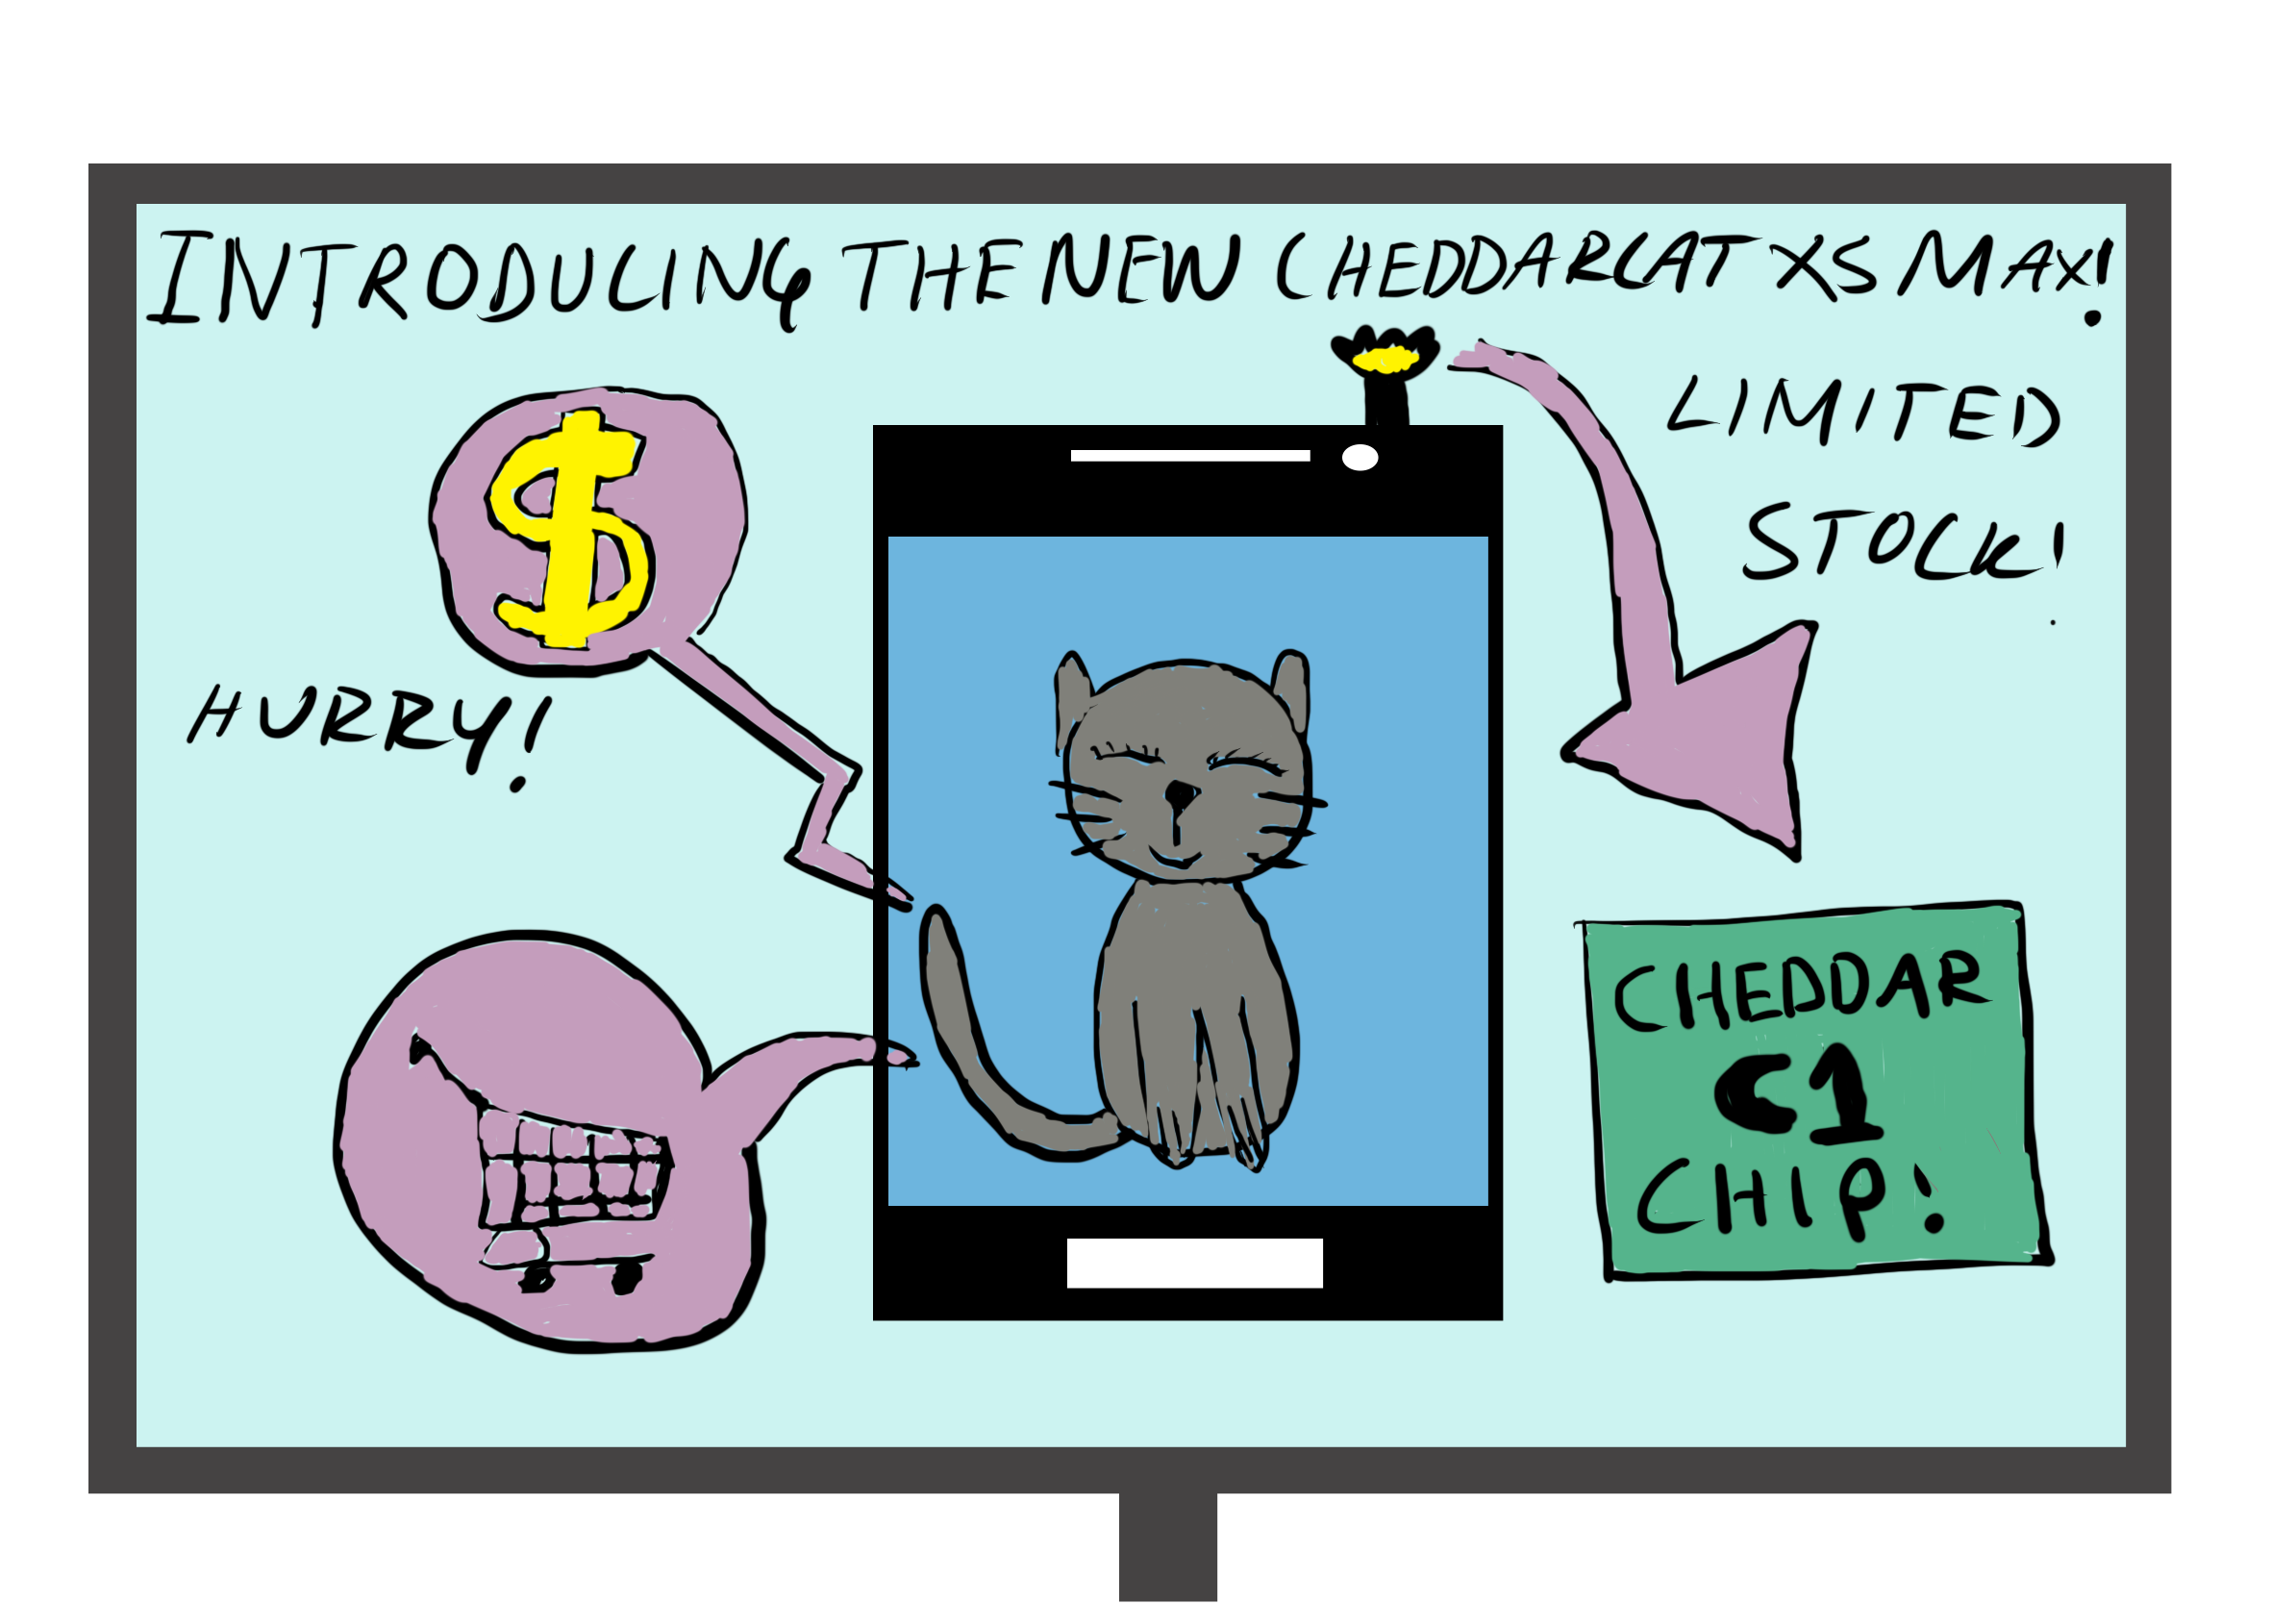 INTRODUCING THE NEW CHEDDARCAT XS MAX!
LIMITED
STOCK!
$
HURRY!
CHEDDAR
C1
CHIP!